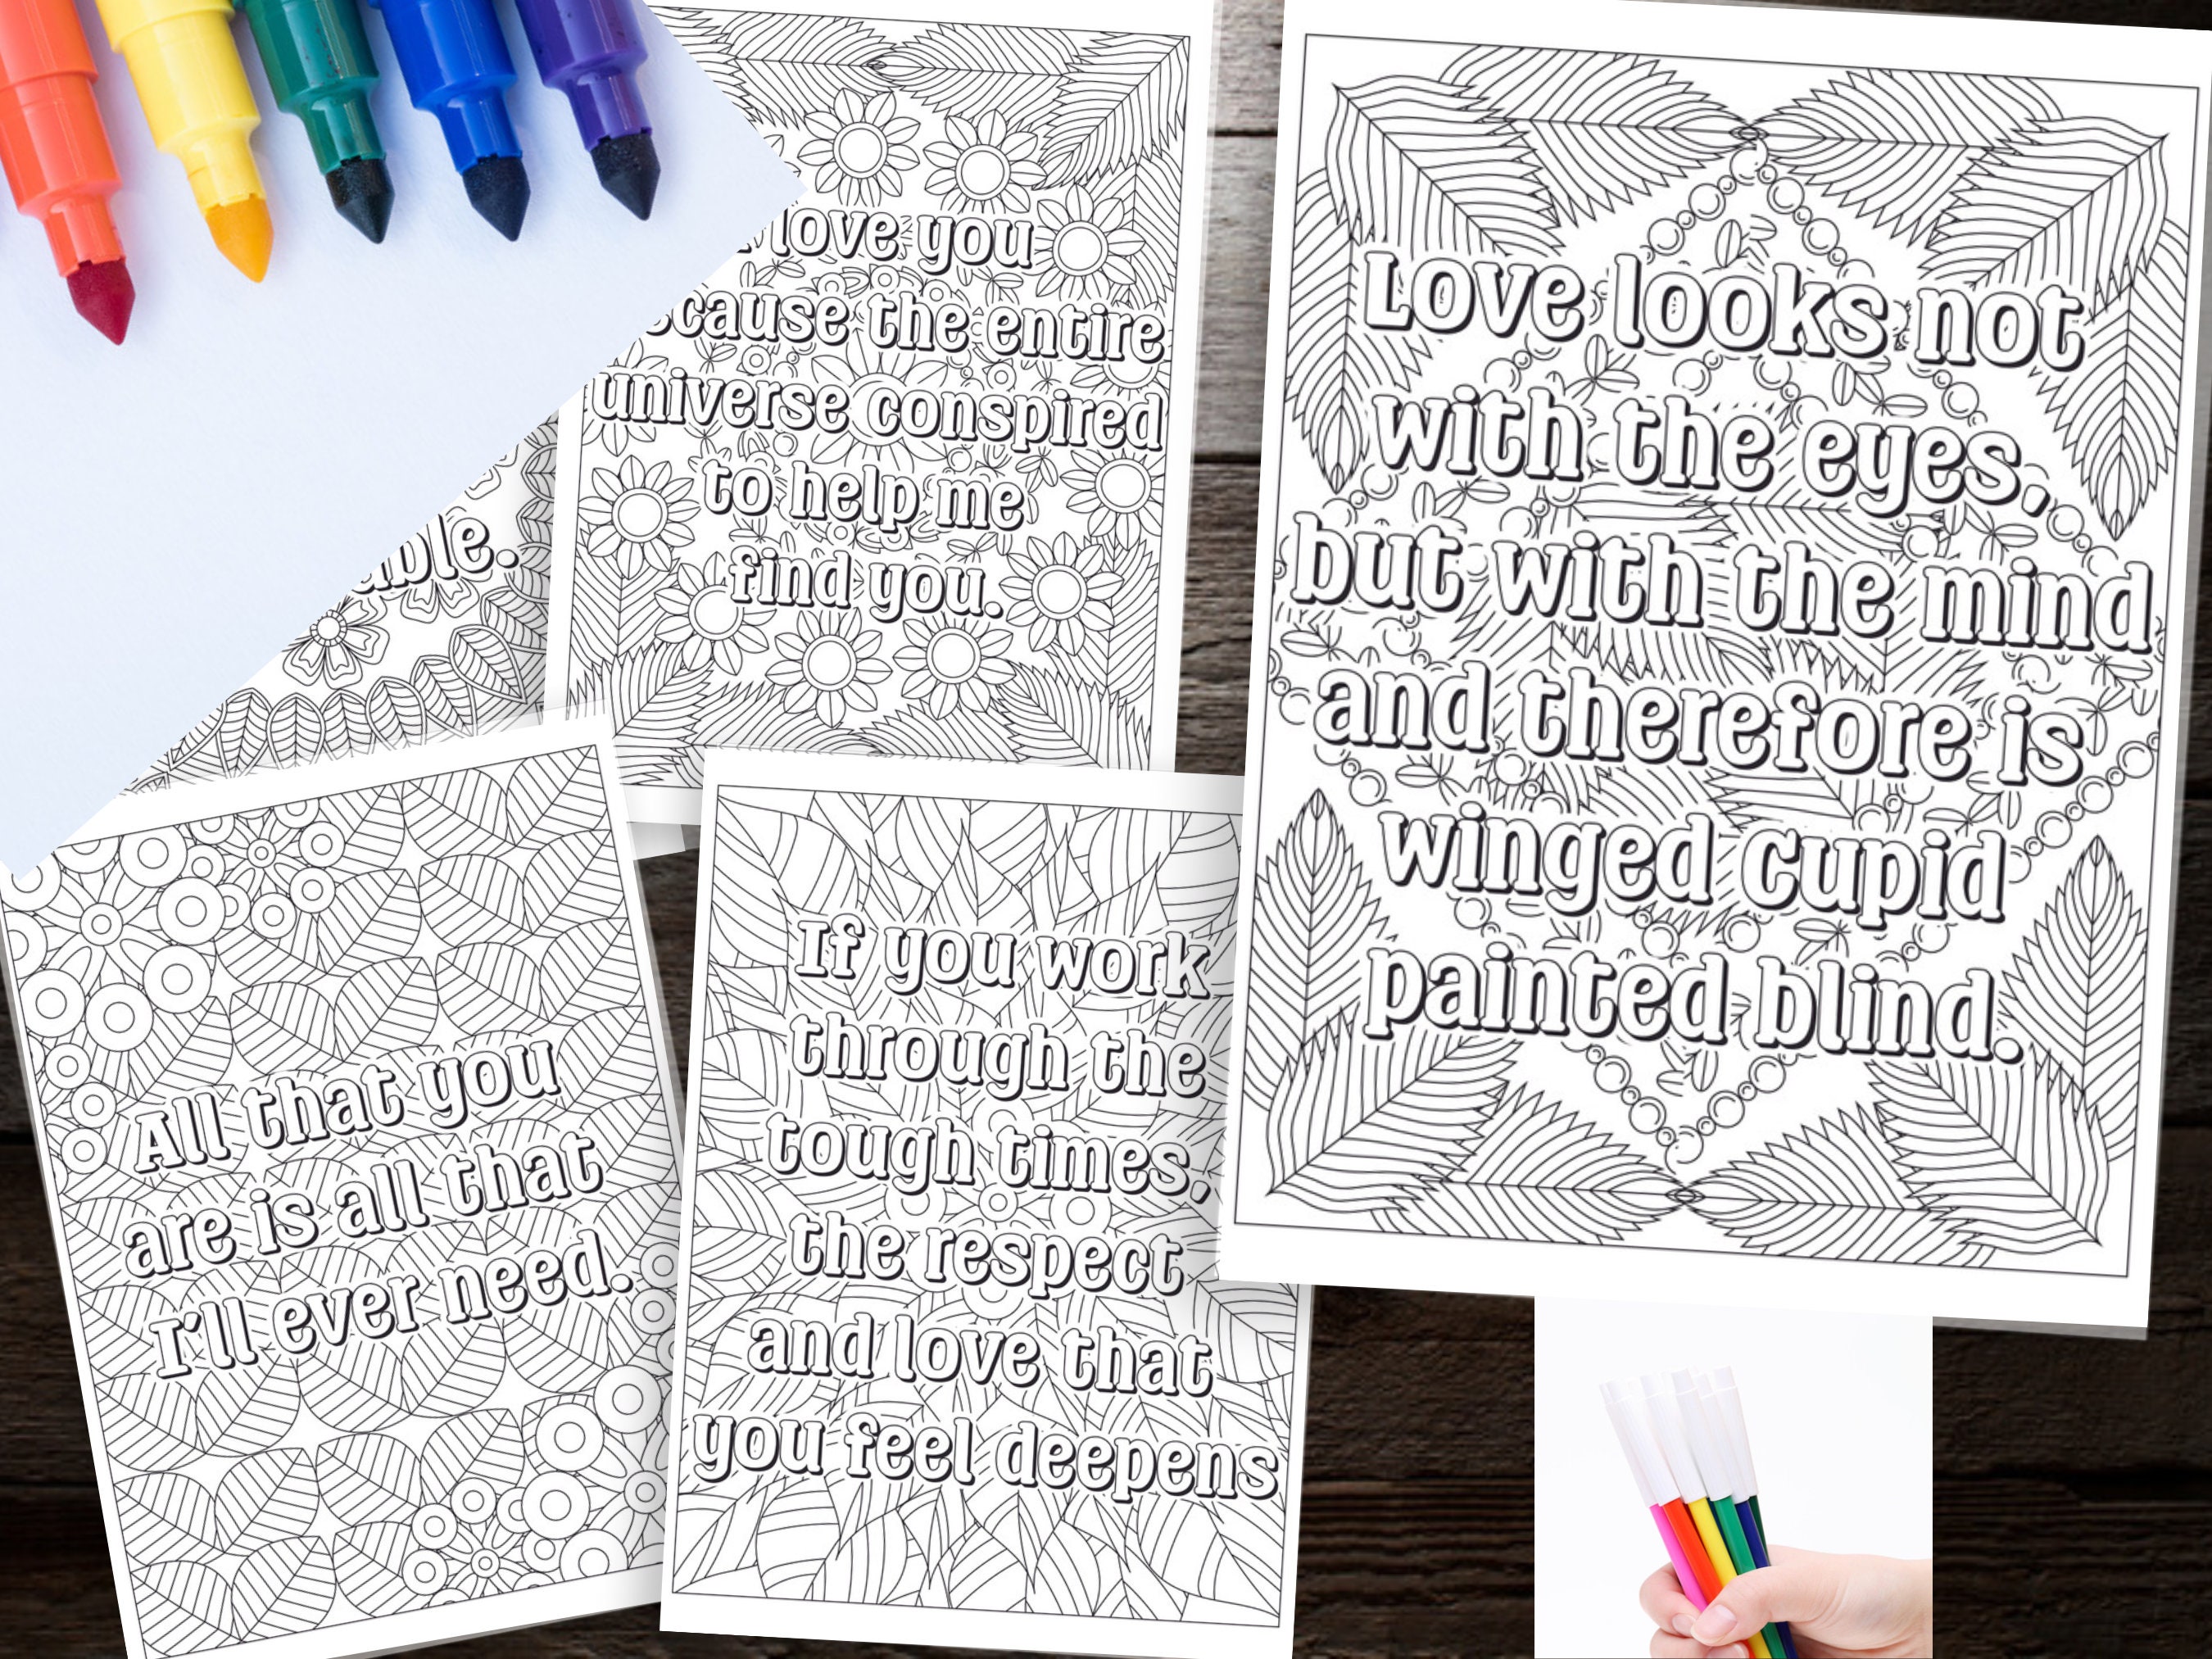 love you
the entire
universe conspired
to help me
find you.
Love looks not
with the eyes,
but with the mind
and therefore is
winged Cupid
painted blind.
All that you
are is all that
I'll ever need.
If you work
through the
tough times,
the respect
and love that
you feel deepens